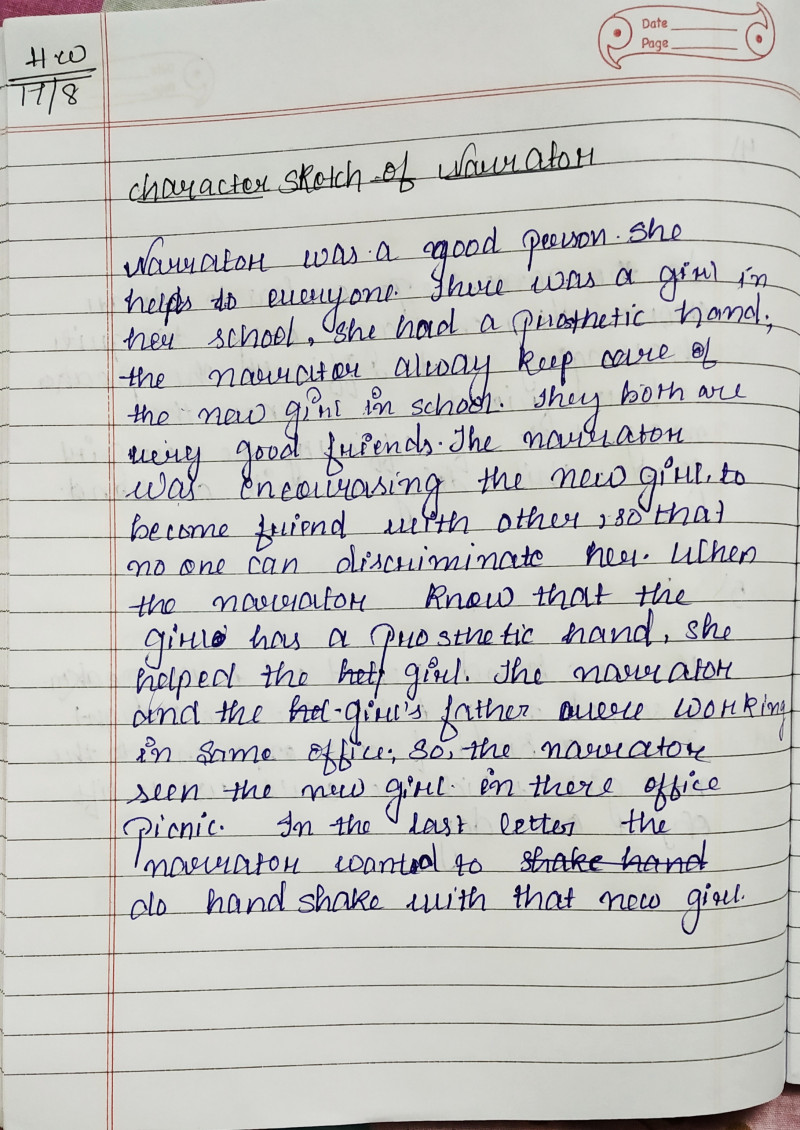 H W
17/8
Date
Page
Character sketch of Narrator
Narrator was a good person. She
helps to everyone. There was a girl in
her school, she had a prosthetic hand,
the narrator alway keep care of
the new girl in school. They both are
very good friends. The narrator
was encourasing the new girl, to
become friend with other, so that
no one can discriminate her. When
the narrator know that the
girl has a prosthetic hand, she
helped the girl. The narrator
and the girl's father were working
in same office, so, the narrator
seen the new girl in there office
Picnic. In the last letter the
narrator wanted to shake hand
do hand shake with that new girl.